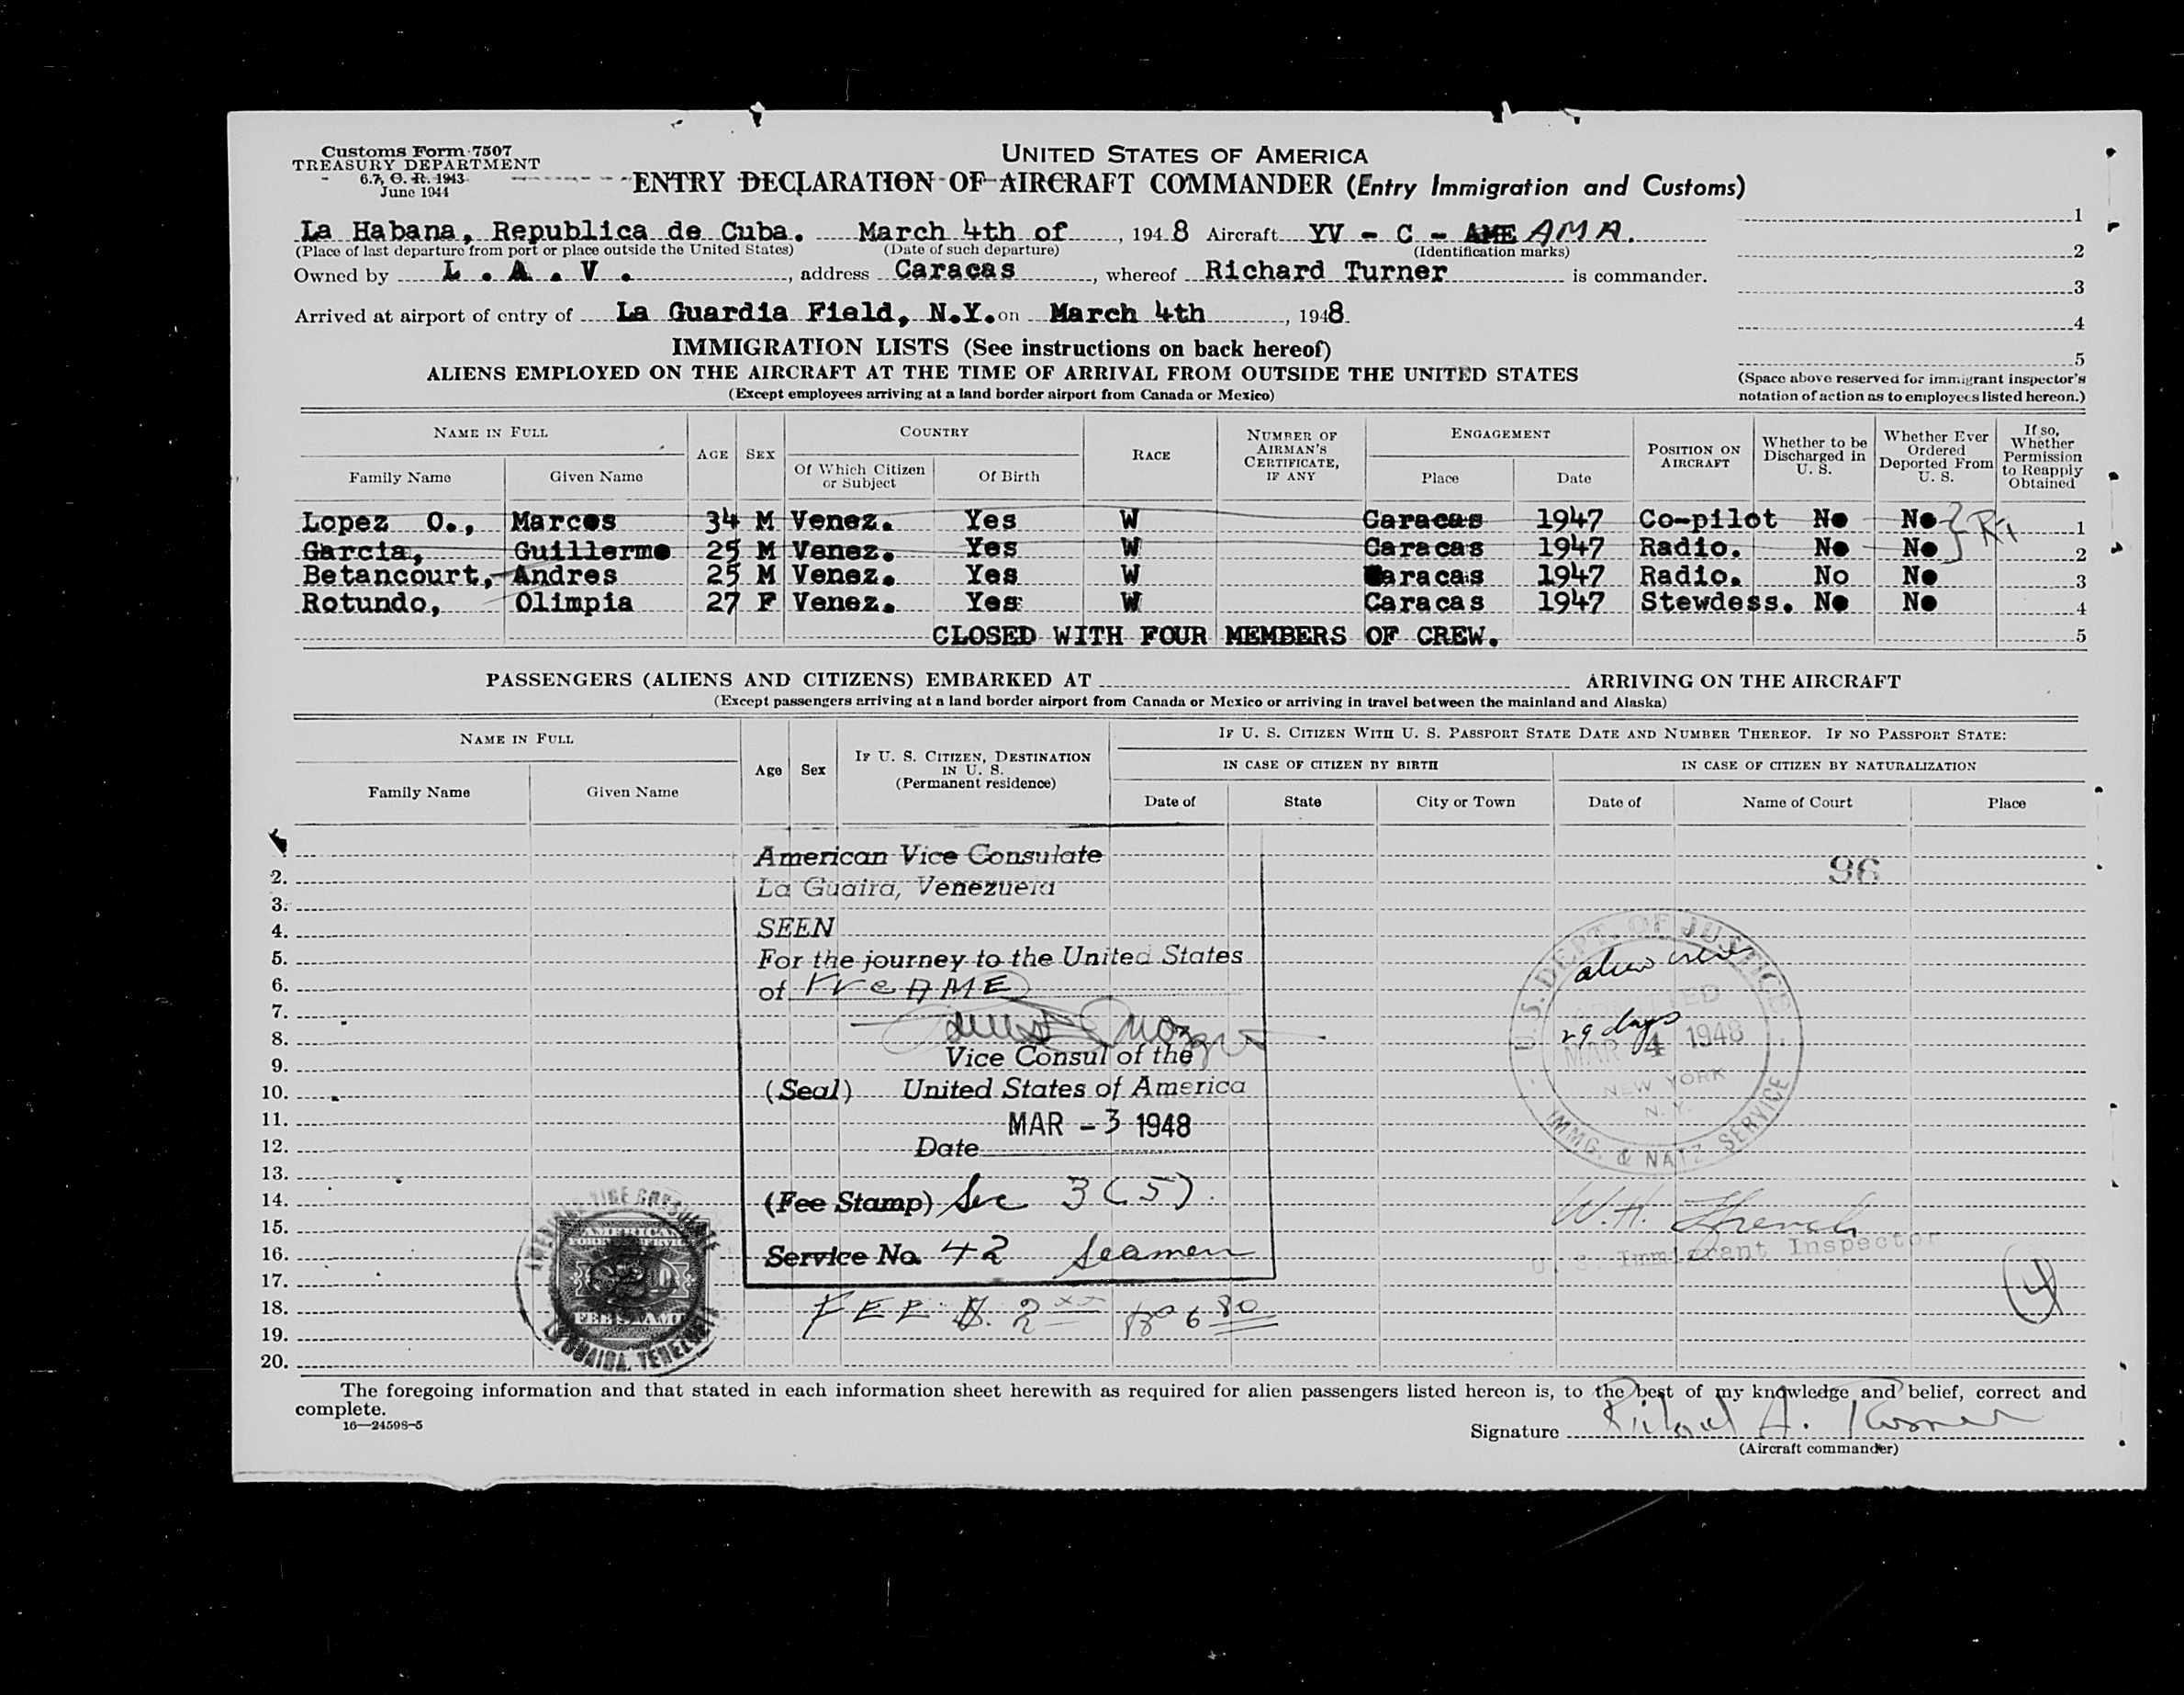 Customs Form 7507
TREASURY DEPARTMENT
June 1944
UNITED STATES OF AMERICA
ENTRY DECLARATION OF AIRCRAFT COMMANDER (Entry Immigration and Customs)
La Habana, Republica de Cuba. March 4th of, 1948 Aircraft YV - C - AME AMA.
(Place of last departure from port or place outside the United States) (Date of such departure) (Identification marks)
Owned by L . A . V . , address Caracas, whereof Richard Turner is commander.
Arrived at airport of entry of La Guardia Field, N.Y. on March 4th, 1948.
1
2
3
4
5
(Space above reserved for immigrant inspector's
notation of action as to employees listed hereon.)
IMMIGRATION LISTS (See instructions on back hereof)
ALIENS EMPLOYED ON THE AIRCRAFT AT THE TIME OF ARRIVAL FROM OUTSIDE THE UNITED STATES
(Except employees arriving at a land border airport from Canada or Mexico)
NAME IN FULL AGE SEX COUNTRY RACE NUMBER OF AIRMAN'S CERTIFICATE, IF ANY ENGAGEMENT POSITION ON AIRCRAFT Whether to be Discharged in U. S. Whether Ever Ordered Deported From U. S. If so, Whether Permission to Reapply Obtained
Family Name Given Name Of Which Citizen or Subject Of Birth Place Date
Lopez O., Marcos 34 M Venez. Yes W Caracas 1947 Co-pilot No No 1
Garcia, Guillermo 25 M Venez. Yes W Caracas 1947 Radio. No No 2
Betancourt, Andres 25 M Venez. Yes W Caracas 1947 Radio. No No 3
Rotundo, Olimpia 27 F Venez. Yes W Caracas 1947 Stewdess. No No 4
CLOSED WITH FOUR MEMBERS OF CREW. 5
PASSENGERS (ALIENS AND CITIZENS) EMBARKED AT ARRIVING ON THE AIRCRAFT
(Except passengers arriving at a land border airport from Canada or Mexico or arriving in travel between the mainland and Alaska)
NAME IN FULL Age Sex IF U. S. CITIZEN, DESTINATION IN U. S. (Permanent residence) IF U. S. CITIZEN WITH U. S. PASSPORT STATE DATE AND NUMBER THEREOF. IF NO PASSPORT STATE:
IN CASE OF CITIZEN BY BIRTH IN CASE OF CITIZEN BY NATURALIZATION
Family Name Given Name Date of State City or Town Date of Name of Court Place
2.
3.
4.
5.
6.
7.
8.
9.
10.
11.
12.
13.
14.
15.
16.
17.
18.
19.
20.
American Vice Consulate
La Guaira, Venezuela
SEEN
For the journey to the United States
of
Vice Consul of the
(Seal) United States of America
MAR - 3 1948
Date
(Fee Stamp) Sec 3 (5).
Service No. 42 Seamen
FEE $. 2
96
U.S. DEPT. OF JUSTICE
alien crew
ADMITTED
29 days
MAR 4 1948
NEW YORK
N. Y.
IMMG. & NATZ. SERVICE
W.H. French
U. S. Immigrant Inspector
4
AMERICAN VICE CONSULATE
AMERICAN
FEE STAMP
LA GUAIRA, VENEZUELA
The foregoing information and that stated in each information sheet herewith as required for alien passengers listed hereon is, to the best of my knowledge and belief, correct and
complete.
16—24598-5
Signature Richard A. Turner
(Aircraft commander)